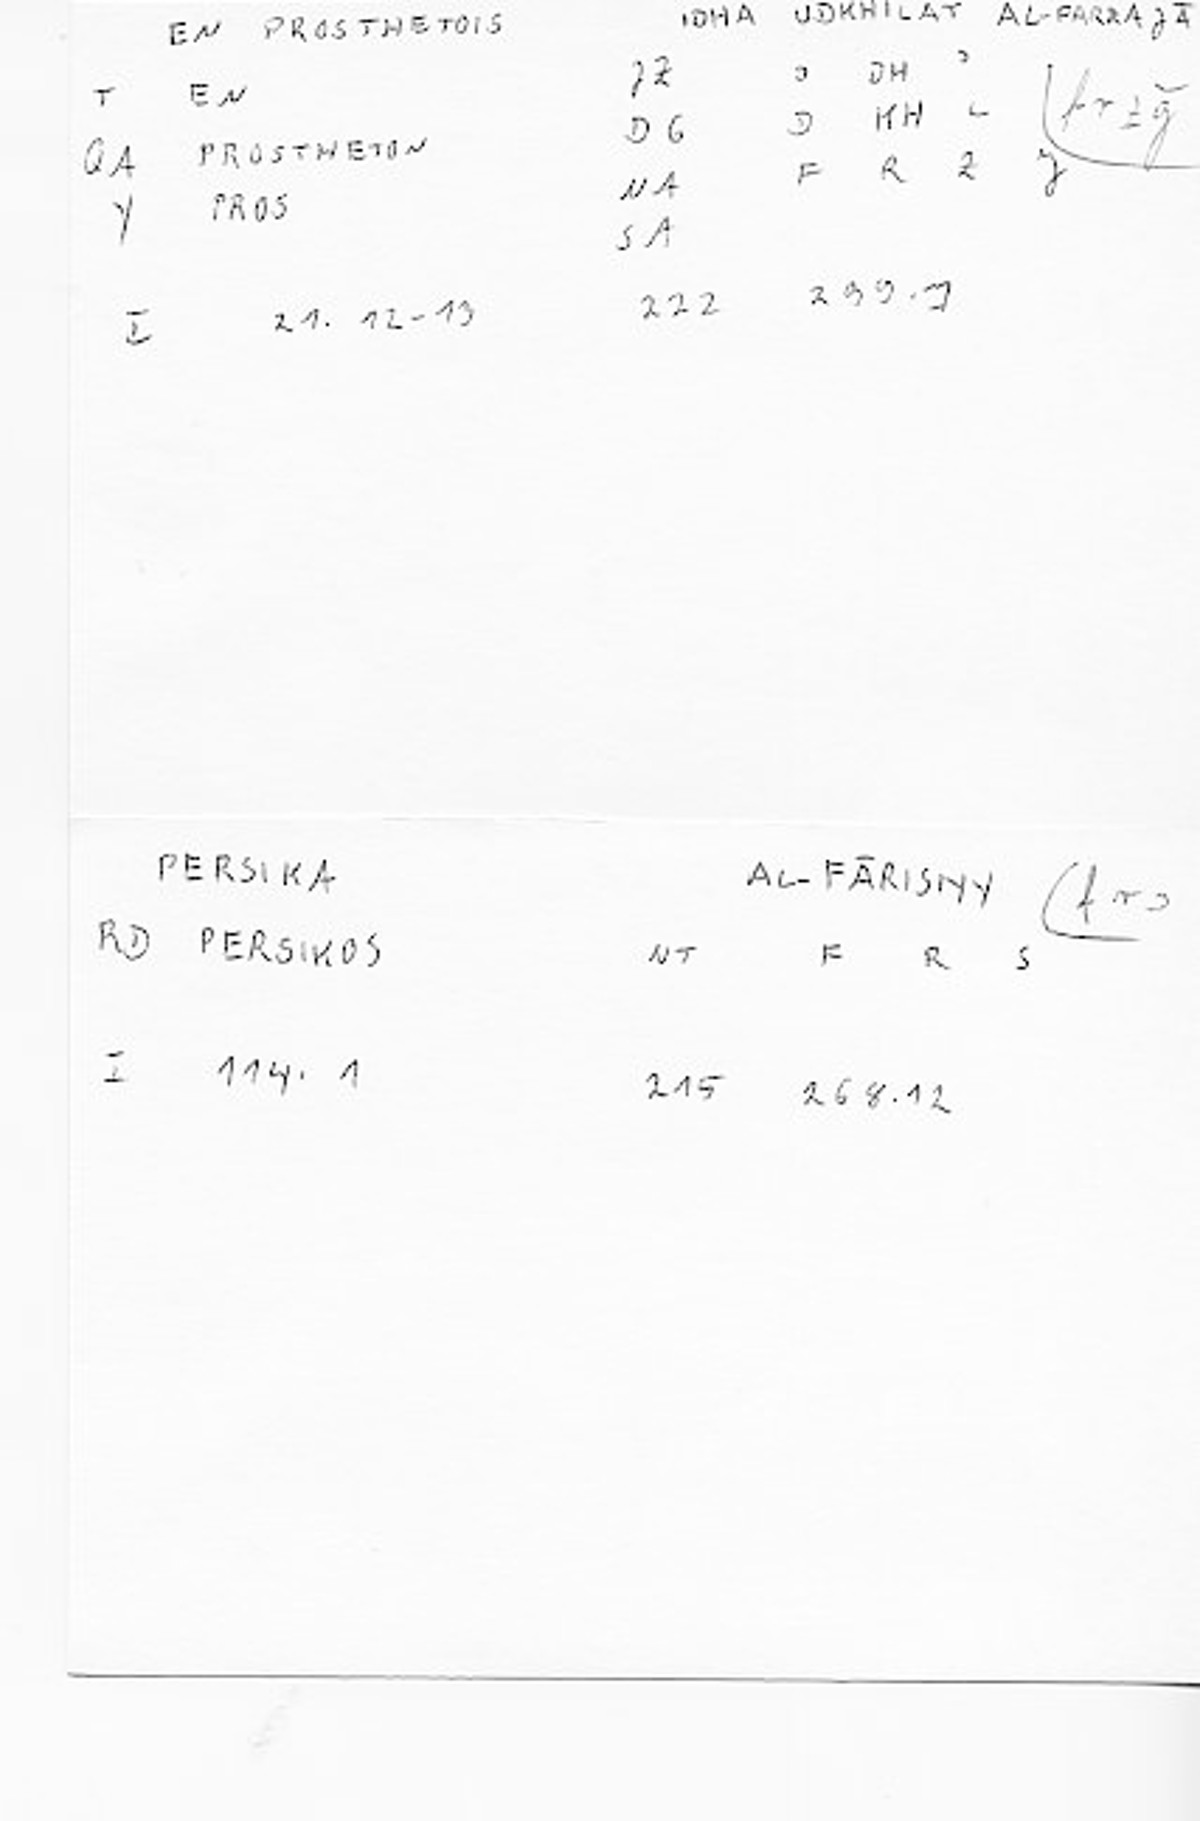 EN PROSTHETOIS IDHA UDKHILAT AL-FARZAJĀ
T EN JZ ʾ DH ʾ
QA PROSTHETON DG D KH L frzǧ
Y PROS NA F R Z J
SA
I 21. 12-13 222 299.7
PERSIKA AL-FĀRISIYY (frs
RD PERSIKOS NT F R S
I 114. 1 215 268.12